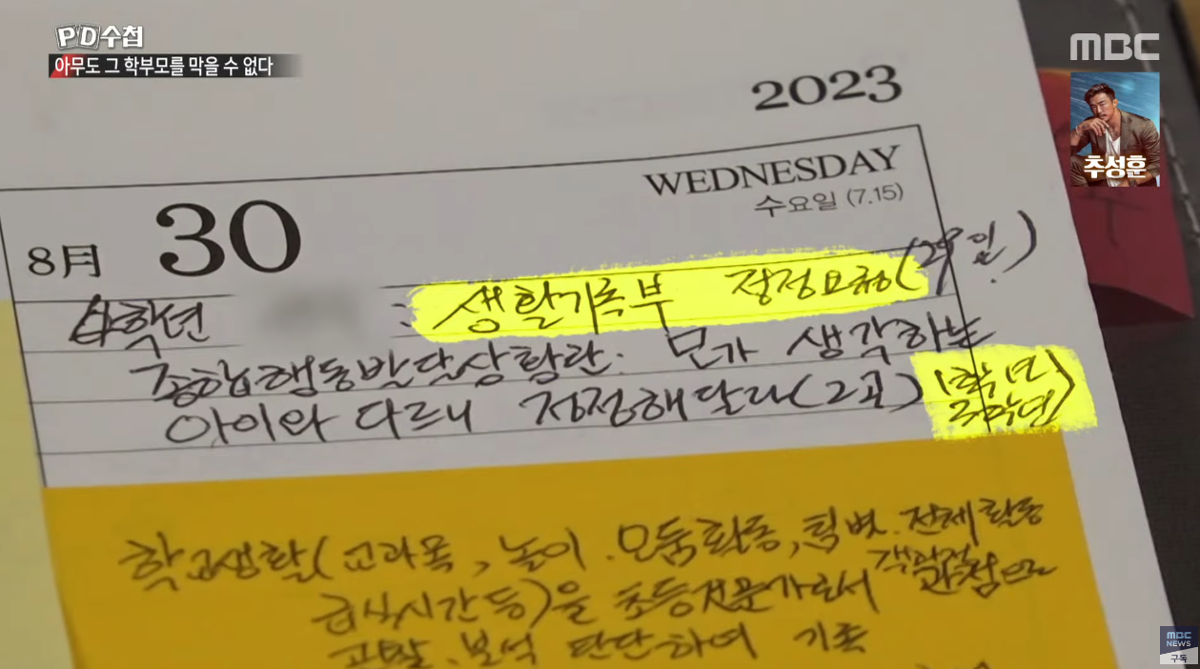 PD수첩
아무도 그 학부모를 막을 수 없다
MBC
추성훈
2023
WEDNESDAY
수요일 (7.15)
8月 30
4학년 : 생활기록부 정정요청(29일)
종합행동발달상황란: 모가 생각하는
아이와 다르니 정정해달라(2곳) 1학년
2학년)
학교생활(교과목, 놀이. 모둠활동, 전체활동
급식시간 등)을 초등전문가로서 객관적
분석 판단하여 기록
MBC
NEWS
구독